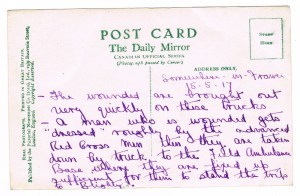 POST CARD
The Daily Mirror
CANADIAN OFFICIAL SERIES
(Photograph passed by Censor)
ADDRESS ONLY.
Somewhere in France
15-5-17
The wounded are brought out
very quickly on these trucks
- a man who is wounded gets
"dressed" roughly by the advanced
Red Cross men then they are taken
down by truck to the Field Ambulance
Base where they are fixed up
sufficient for them to stand the trip
to "Blighty".